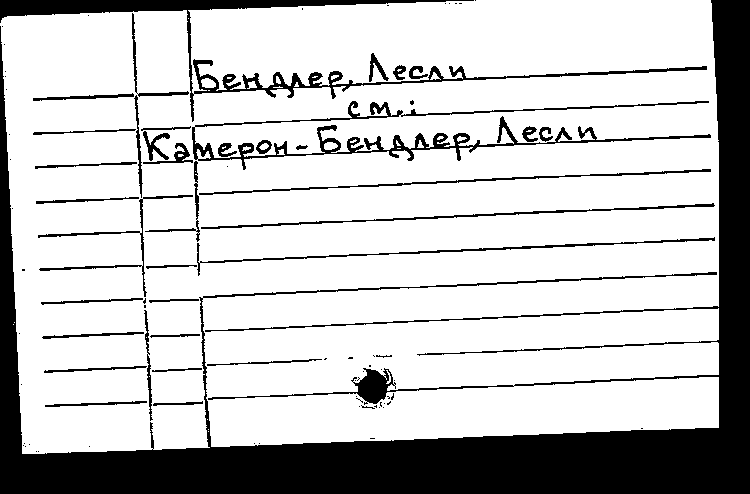 Бендлер, Лесли
см.:
Камерон-Бендлер, Лесли